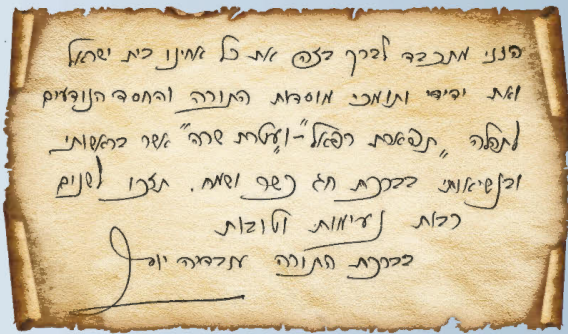 הנני מתכבד לברך בזה את כל אחינו בית ישראל
ואת ידידי ותומכי מוסדות התורה והחסד הנודעים
לתהלה "תפארת רפאל" – "ועטרת שרה" אשר בראשותי
ובנשיאותי בברכת חג כשר ושמח. תזכו לשנים
רבות נעימות וטובות
בברכת התורה עובדיה יוסף